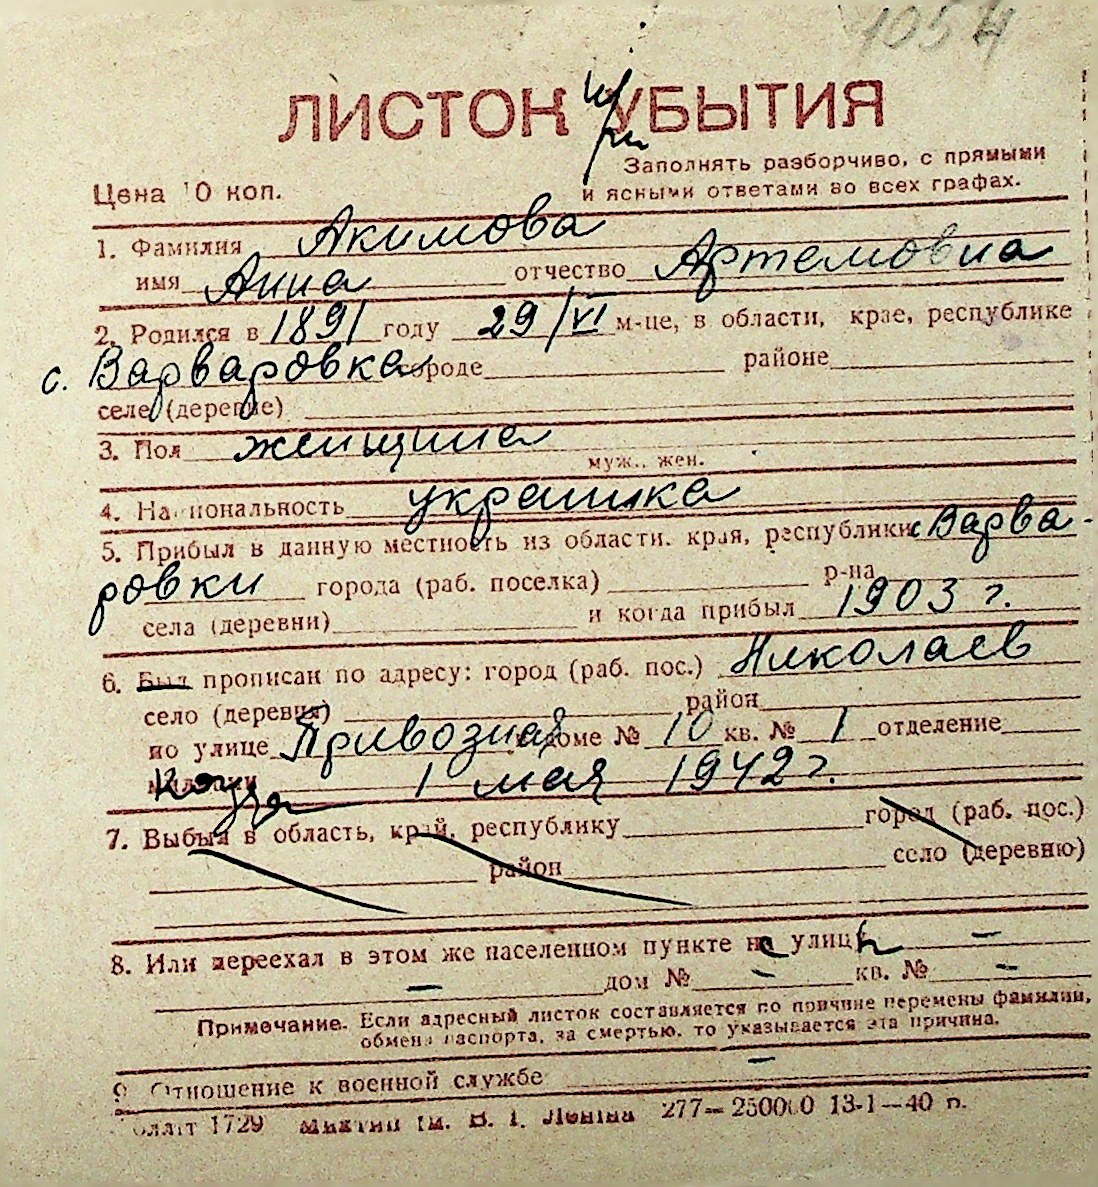 1054
ЛИСТОК УБЫТИЯ
при
Заполнять разборчиво, с прямыми
Цена 10 коп. и ясными ответами во всех графах.
1. Фамилия Акимова
имя Анна отчество Артемовна
2. Родился в 1891 году 29/VI м-це, в области, крае, республике
с. Варваровка городе районе
селе (деревне)
3. Пол женщина
муж., жен.
4. Национальность украинка
5. Прибыл в данную местность из области, края, республики с Варва-
ровки города (раб. поселка) р-на
села (деревни) и когда прибыл 1903 г.
6. Был прописан по адресу: город (раб. пос.) Николаев
село (деревня) район
по улице Привозная в доме № 10 кв. № 1 отделение
милиции Когда 1 мая 1942 г.
7. Выбыл в область, край, республику город (раб. пос.)
район село (деревню)
8. Или переехал в этом же населенном пункте на улицу –
– дом № – кв. № –
Примечание. Если адресный листок составляется по причине перемены фамилии,
обмена паспорта, за смертью, то указывается эта причина.
9. Отношение к военной службе –
1729 ім. В. І. Леніна 277–250000 13-1–40 п.